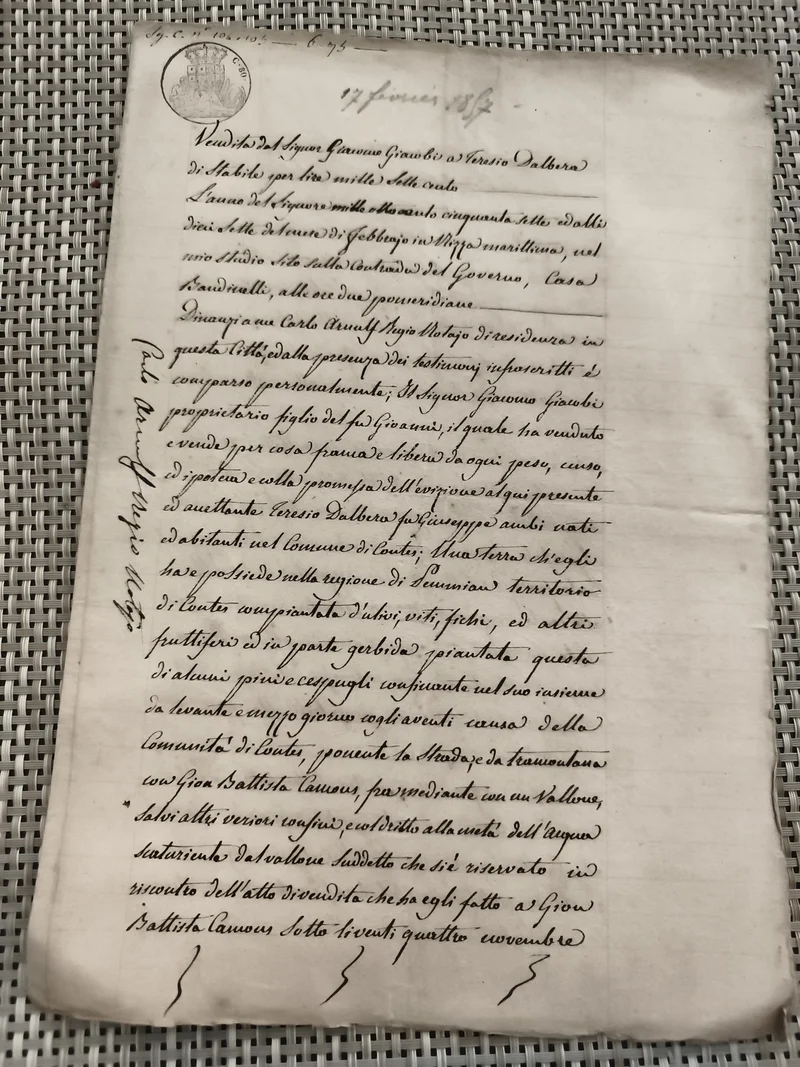 6 75
C. 80
17 février 1857
Vendita dal Signor Giacomo Giacobi a Teresio Dalbera
di Stabile per lire mille Sette cento
L'anno del Signore mille otto cento cinquanta sette ed alli
dieci Sette del mese di Febbrajo in Nizza marittima, nel
mio studio sito sulla Contrada del Governo, Casa
Bandinelli, alle ore due pomeridiane
Dinanzi a me Carlo Arnulf Regio Notajo di residenza in
questa Città, ed alla presenza dei testimonj infrascritti è
comparso personalmente; Il Signor Giacomo Giacobi
proprietario figlio del fu Gioanni, il quale ha venduto
e vende per cosa franca e libera da ogni peso, censo,
ed ipoteca e colla promessa dell'evizione al qui presente
ed accettante Teresio Dalbera fu Giuseppe ambi nati
ed abitanti nel Comune di Contes; Una terra ch'egli
ha e possiede nella regione di territorio
di Contes compiantata d'ulivi, viti, fichi, ed altri
fruttiferi ed in parte gerbida piantata questa
di alcuni pini e cespugli confinante nel suo insieme
da levante e mezzo giorno cogli aventi causa della
Comunità di Contes, ponente la Strada, e da tramontana
con Gioa Battista Camous, fra mediante con un Vallone,
Salvi altri veriori confini, e col dritto alla metà dell'Acqua
scaturiente dal vallone suddetto che si è riservato in
riscontro dell'atto di vendita che ha egli fatto a Gioa
Battista Camous Sotto li venti quattro novembre
Carlo Arnulf Regio Notajo